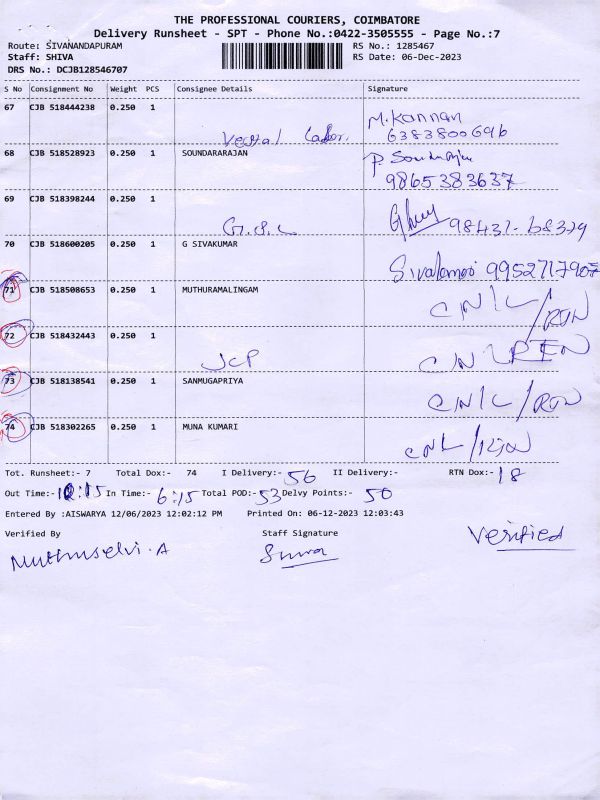 THE PROFESSIONAL COURIERS, COIMBATORE
Delivery Runsheet - SPT - Phone No.:0422-3505555 - Page No.:7
Route: SIVANANDAPURAM RS No.: 1285467
Staff: SHIVA RS Date: 06-Dec-2023
DRS No.: DCJB128546707
S No Consignment No Weight PCS Consignee Details Signature
67 CJB 518444238 0.250 1 M.Kannan
6383800696
68 CJB 518528923 0.250 1 SOUNDARARAJAN P.
9865383637
69 CJB 518398244 0.250 1
98431-68329
70 CJB 518600205 0.250 1 G SIVAKUMAR
9952717907
71 CJB 518508653 0.250 1 MUTHURAMALINGAM CNL/RTN
72 CJB 518432443 0.250 1 JCP
73 CJB 518138541 0.250 1 SANMUGAPRIYA CNL/RTN
74 CJB 518302265 0.250 1 MUNA KUMARI CNL/RTN
Tot. Runsheet:- 7 Total Dox:- 74 I Delivery:- 56 II Delivery:- RTN Dox:- 18
Out Time:- In Time:- 6:15 Total POD:- 53 Delvy Points:- 50
Entered By :AISWARYA 12/06/2023 12:02:12 PM Printed On: 06-12-2023 12:03:43
Verified By Staff Signature Verified
Muthuselvi.A Shiva